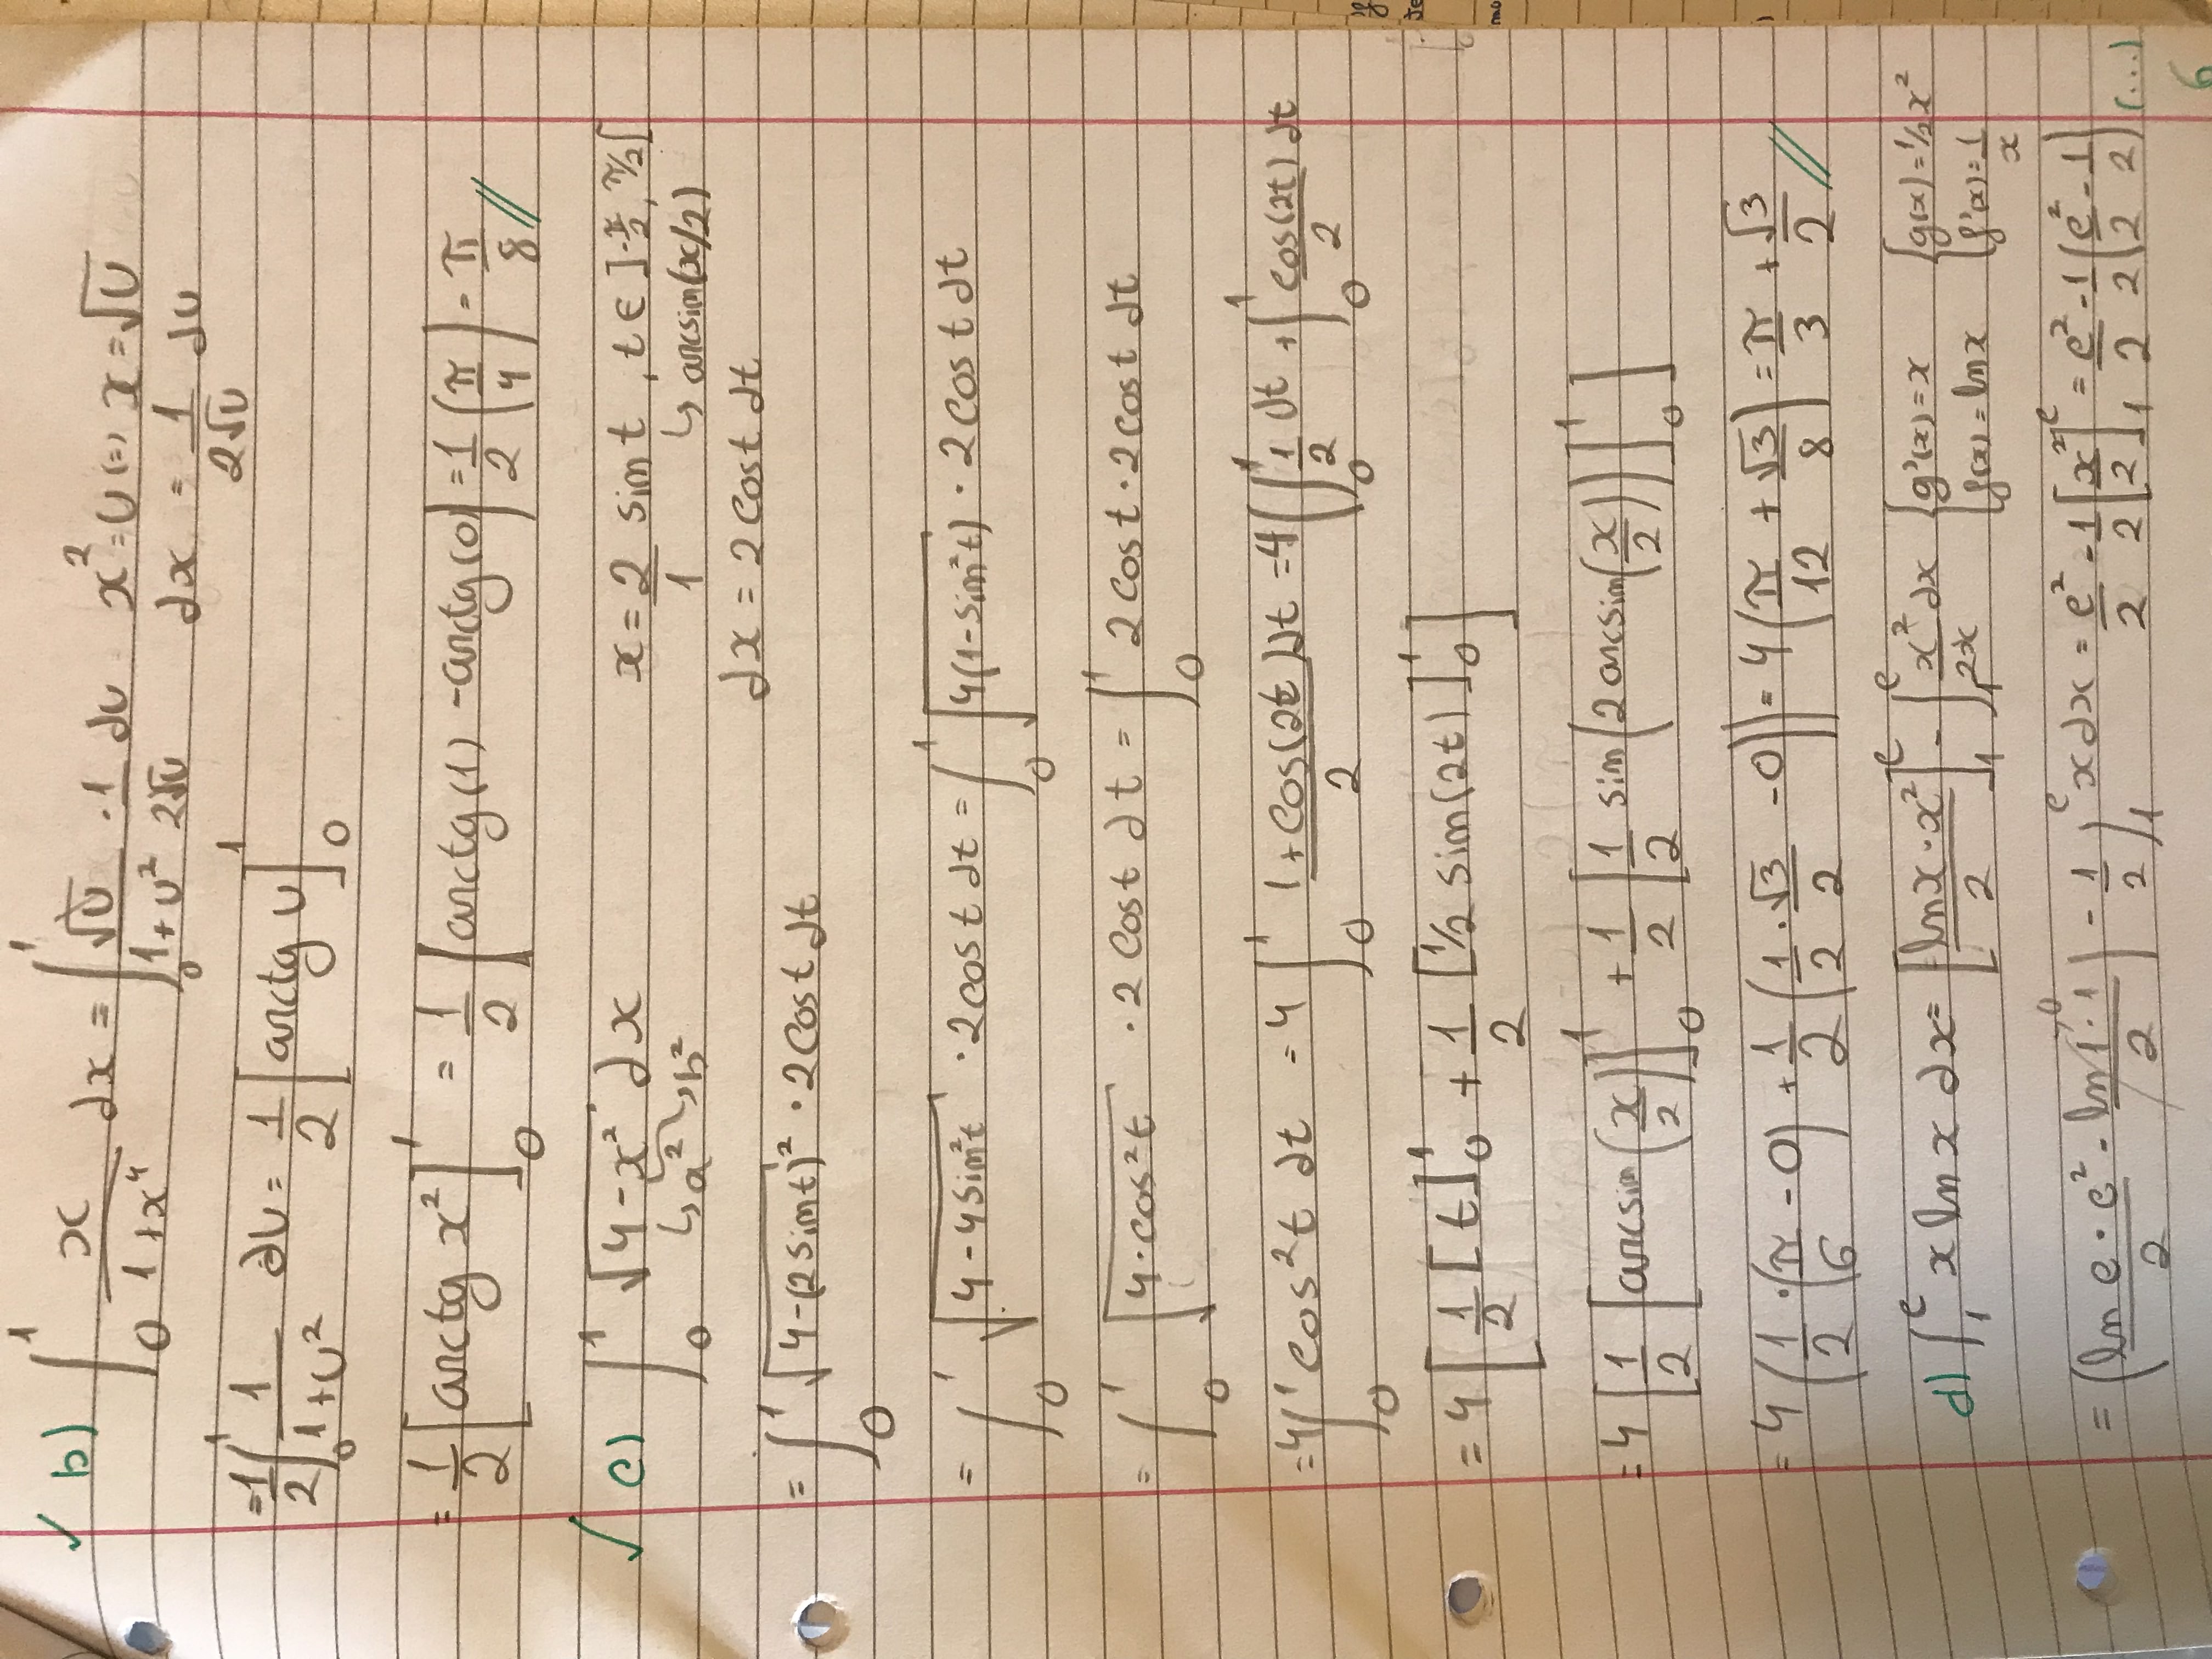 ✓ b) ∫₀¹ x/(1+x⁴) dx = ∫₀¹ √U/(1+U²) · 1/(2√U) dU   x² = U (=) x = √U
dx = 1/(2√U) dU
= 1/2 ∫₀¹ 1/(1+U²) dU = 1/2 [arctg U]₀¹
= 1/2 [arctg x²]₀¹ = 1/2 [arctg(1) - arctg(0)] = 1/2 (π/4) = π/8 //
✓ c) ∫₀¹ √(4-x²) dx   x = 2/1 sin t , t ∈ ]-π/2, π/2[
↳ a² ↳ b²   ↳ arcsin(x/2)
dx = 2 cos t dt
= ∫₀¹ √(4-(2 sin t)²) · 2 cos t dt
= ∫₀¹ √(4-4 sin²t) · 2 cos t dt = ∫₀¹ √(4(1-sin²t)) · 2 cos t dt
= ∫₀¹ √(4·cos²t) · 2 cos t dt = ∫₀¹ 2 cos t · 2 cos t dt
= 4 ∫₀¹ cos²t dt = 4 ∫₀¹ (1+cos(2t))/2 dt = 4 ( ∫₀¹ 1/2 dt + ∫₀¹ cos(2t)/2 dt
= 4 [ 1/2 [t]₀¹ + 1/2 [1/2 sin(2t)]₀¹ ]
= 4 [ 1/2 [arcsin(x/2)]₀¹ + 1/2 [1/2 sin(2 arcsin(x/2))]₀¹ ]
= 4 (1/2 · (π/6 - 0) + 1/2 (1/2 · √3/2 - 0)) = 4 (π/12 + √3/8) = π/3 + √3/2 //
d) ∫₁ᵉ x ln x dx = [(ln x · x²)/2]₁ᵉ - ∫₁ᵉ x²/(2x) dx   { g'(x) = x   { g(x) = 1/2 x²
{ f(x) = ln x   { f'(x) = 1/x
= ((ln e · e²)/2 - (ln 1 · 1)/2 →0) - 1/2 ∫₁ᵉ x dx = e²/2 - 1/2 [x²/2]₁ᵉ = e²/2 - 1/2 (e²/2 - 1/2) (...)
6